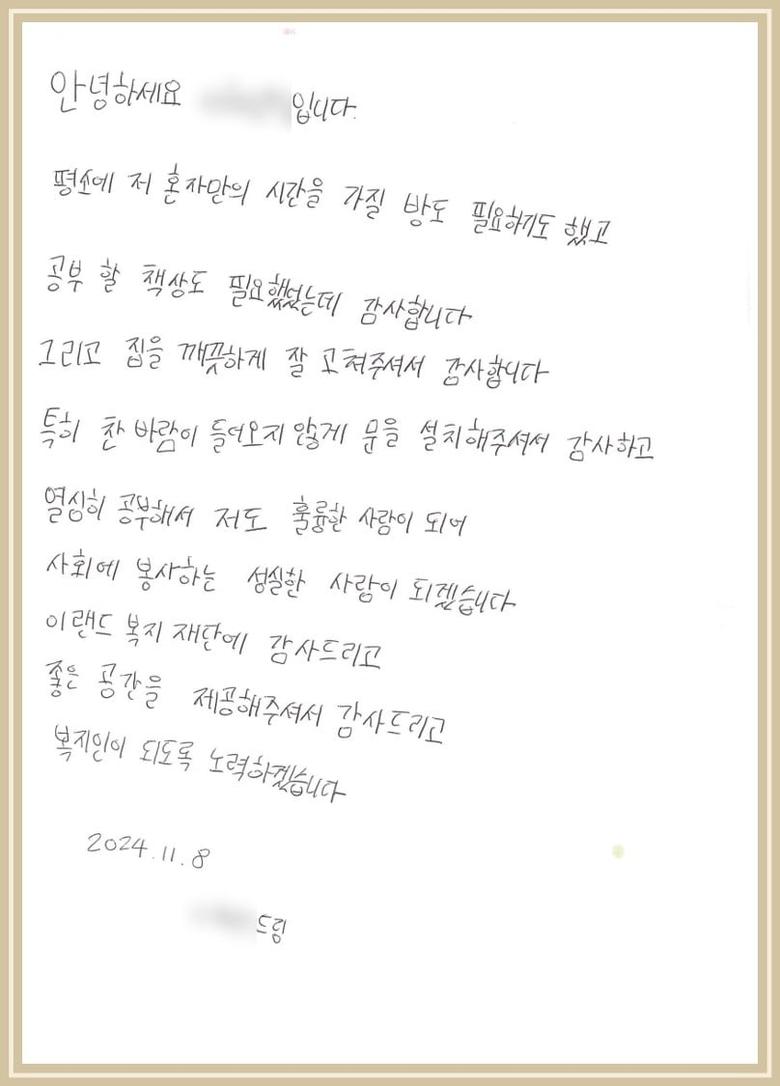 안녕하세요 입니다.
평소에 저 혼자만의 시간을 가질 방도 필요하기도 했고
공부 할 책상도 필요했었는데 감사합니다
그리고 집을 깨끗하게 잘 고쳐주셔서 감사합니다
특히 찬 바람이 들어오지 않게 문을 설치해주셔서 감사하고
열심히 공부해서 저도 훌륭한 사람이 되어
사회에 봉사하는 성실한 사람이 되겠습니다
이랜드 복지 재단에 감사드리고
좋은 공간을 제공해주셔서 감사드리고
복지인이 되도록 노력하겠습니다
2024.11.8
드림